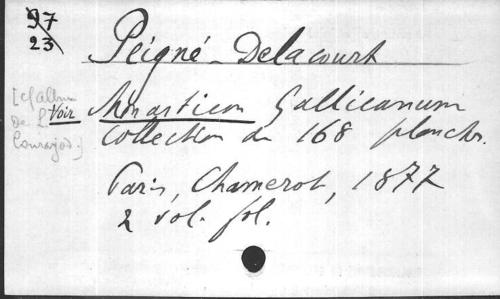 97
23
Peigné-Delacourt
[cf album de L. Courajod.]
Voir Monasticon Gallicanum
Collection de 168 planches.
Paris, Chamerot, 1877
2 vol. fol.